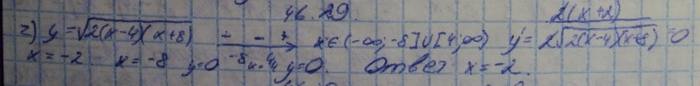 46.29.
г) y = √2(x-4)(x+8) + - + x∈(-∞;-8]∪[4;∞) y' = 2(x+2) / 2√2(x-4)(x+8) = 0
x = -2 x = -8 y=0 -8 4 y=0. Ответ x = -2.